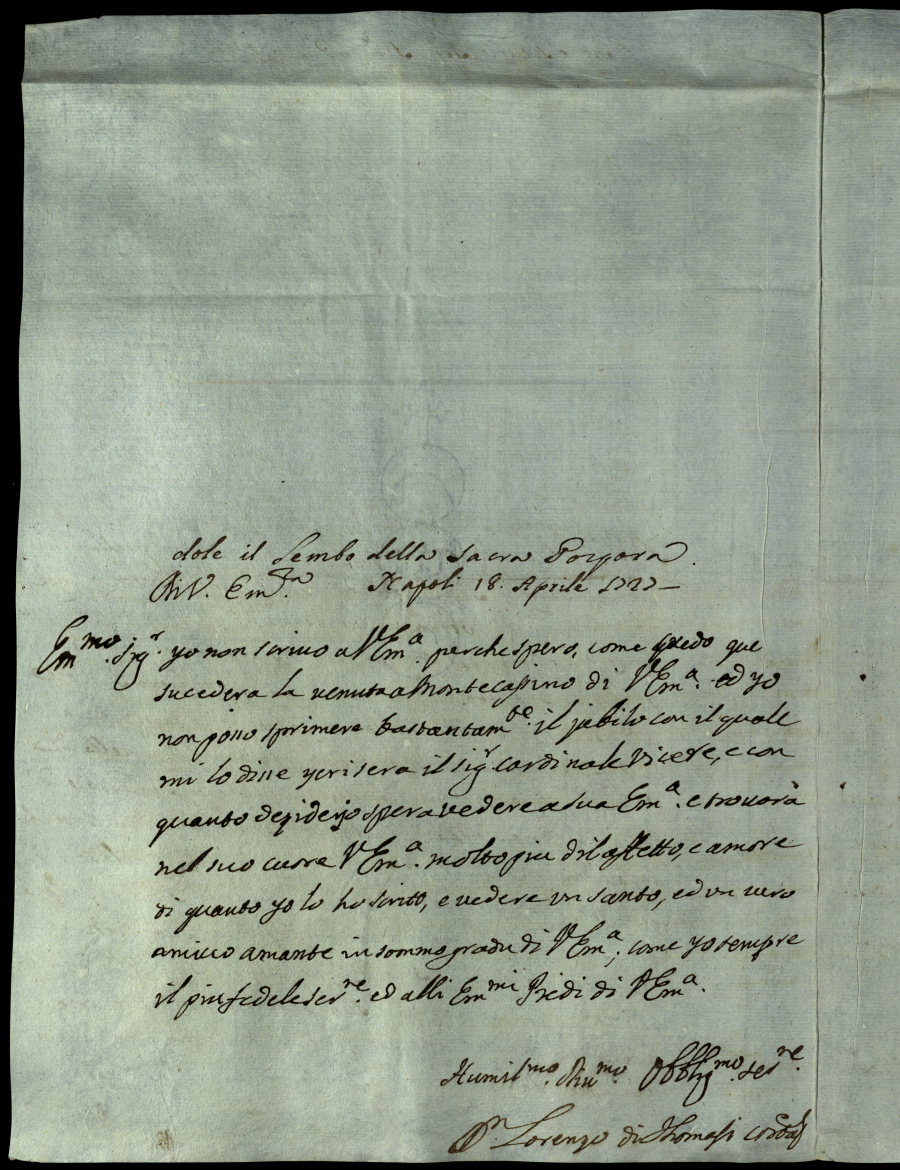 dole il Lembo della Sacra Porpora.
Di V. Em.za Napoli 18. Aprile 1727—
Emmo. Sigr. yo non scrivo a VEma. perche spero, come credo que
sucedera la venuta a Montecassino di VEma. ed yo
non posso sprimere bastantamte. il jubilo con il quale
mi lo disse yerisera il sigr. cardinale Vicere, e con
quanto desiderjo spera vedere a sua Ema. e trovarà
nel suo cuore VEma. molto piu dil affetto, e amore
di quanto yo lo ho scritto, e vedere un santo, ed un vero
amico amante in sommo gradu di VEma., come yo sempre
il piu fedele serre. ed alli Emmi Piedi di VEma.
Humilmo. Divmo. Obbligmo. serre.
Dn. Lorenzo di Thomasi